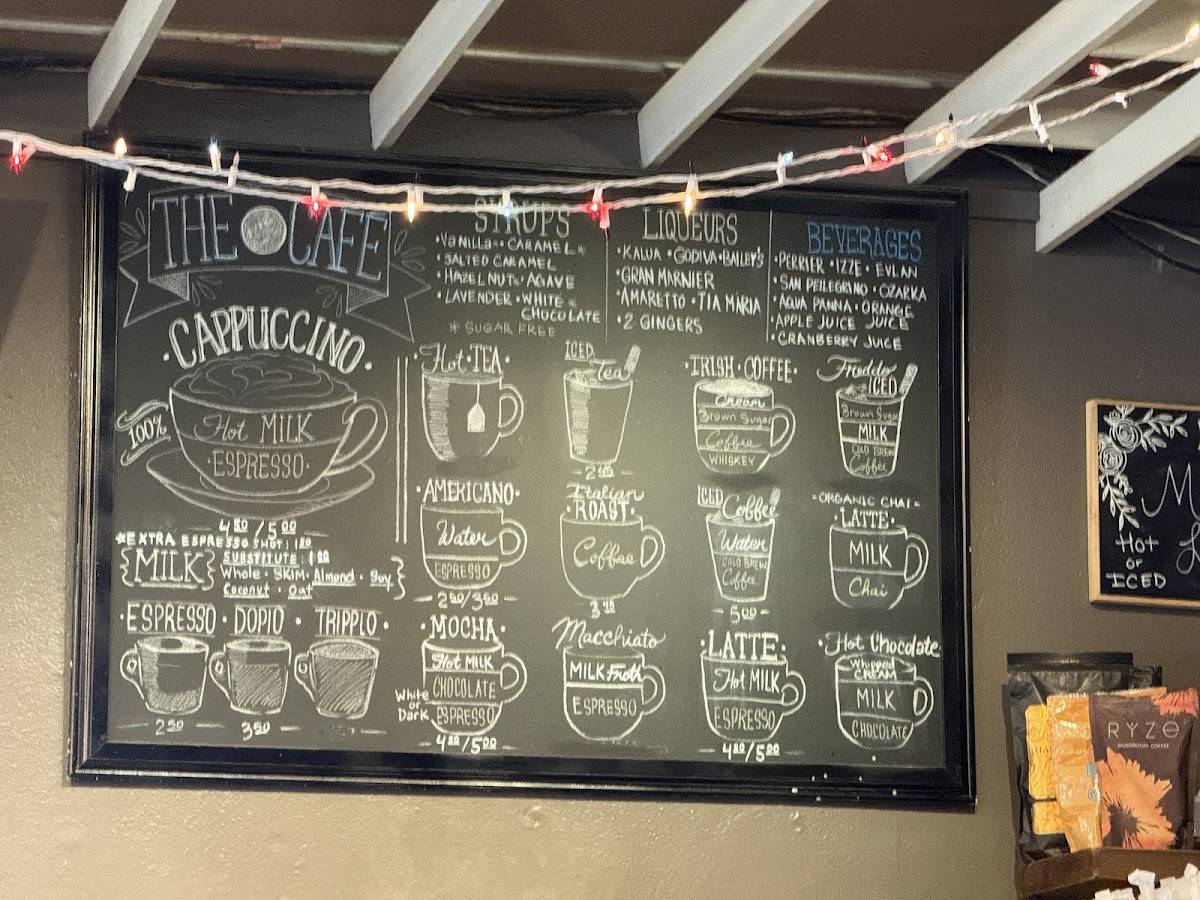 THE CAFE
·CAPPUCCINO·
100%
Hot MILK
·ESPRESSO·
4.50/5.00
*EXTRA ESPRESSO SHOT:
{MILK}
SUBSTITUTE:
Whole · SKIM · Almond · Soy
Coconut · Oat
·ESPRESSO· DOPIO · TRIPPLO·
2.50
3.50
SYRUPS
·VANILLA*·CARAMEL*
·SALTED CARAMEL
·HAZELNUT*·AGAVE
·LAVENDER·WHITE*
CHOCOLATE
*SUGAR FREE
LIQUEURS
·KALUA ·GODIVA·BAILEY'S
·GRAN MARNIER
·AMARETTO ·TIA MARIA
·2 GINGERS
BEVERAGES
·PERRIER ·IZZE · EVIAN
·SAN PELLEGRINO ·OZARKA
·AQUA PANNA · ORANGE
·APPLE JUICE JUICE
·CRANBERRY JUICE
·Hot·TEA·
ICED
Tea
·IRISH·COFFEE·
Cream
Brown Sugar
Coffee
WHISKEY
Freddo
ICED
Brown Sugar
MILK
COLD BREW
Coffee
·AMERICANO·
Water
ESPRESSO
2.50/3.50
Italian
·ROAST·
Coffee
ICED Coffee
Water
COLD BREW
Coffee
5.00
·ORGANIC CHAI·
LATTE·
MILK
Chai
·MOCHA·
Hot MILK
CHOCOLATE
ESPRESSO
White
or
Dark
4.50/5.00
Macchiato
MILK Froth
ESPRESSO
·LATTE·
Hot MILK
ESPRESSO
4.50/5.00
·Hot Chocolate·
Whipped
CREAM
MILK
CHOCOLATE
Hot
or
ICED
RYZE
MUSHROOM COFFEE